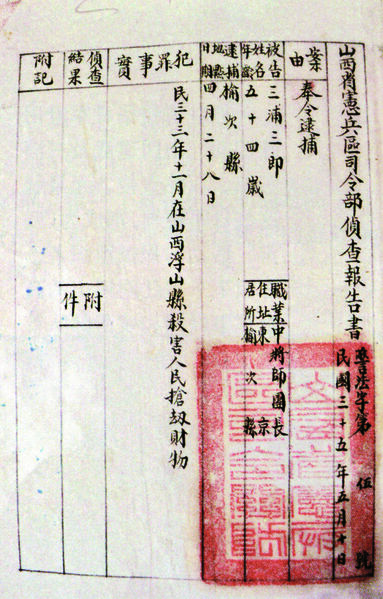 山西省憲兵區司令部偵查報告書
晉法字第伍號
民國三十五年五月十日
案由
奉令逮捕
被告姓名年齡
三浦三郎
五十四歲
職業
中將師團長
住址
東京
居所
榆次縣
逮捕地點日期
榆次縣
四月二十八日
犯罪事實
民三十三年十一月在山西浮山縣殺害人民搶劫財物
偵查結果
附件
附記